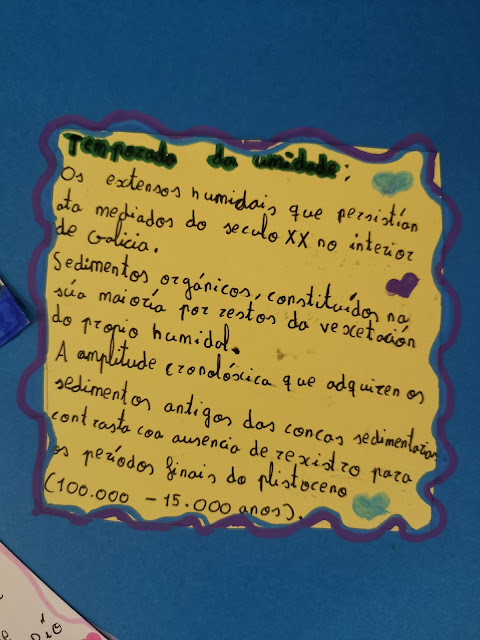 Temporada da umidade:
Os extensos humidais que persistían
ata mediados do seculo XX no interior
de Galicia.
Sedimentos orgánicos, constituídos na
súa maioría por restos da vexetación
do propio humidal.
A amplitude cronolóxica que adquiren os
sedimentos antigos das concas sedimentarias
contrasta coa ausencia de rexistro para
os períodos finais do plistoceno
(100.000 - 15.000 anos).